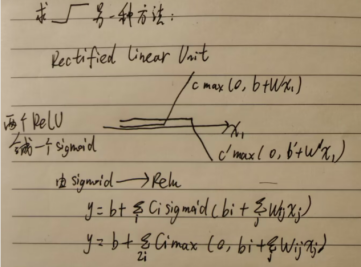 求 另一种方法:
Rectified Linear Unit
c max(0, b+Wx₁)
两个ReLU
合成一个sigmoid
x₁
c' max(0, b'+W'x₁)
由 sigmoid → Relu
y = b + Σᵢ Ci sigmoid(bi + Σⱼ Wj xj)
y = b + Σ₂ᵢ Ci max(0, bi + Σⱼ Wij xj)